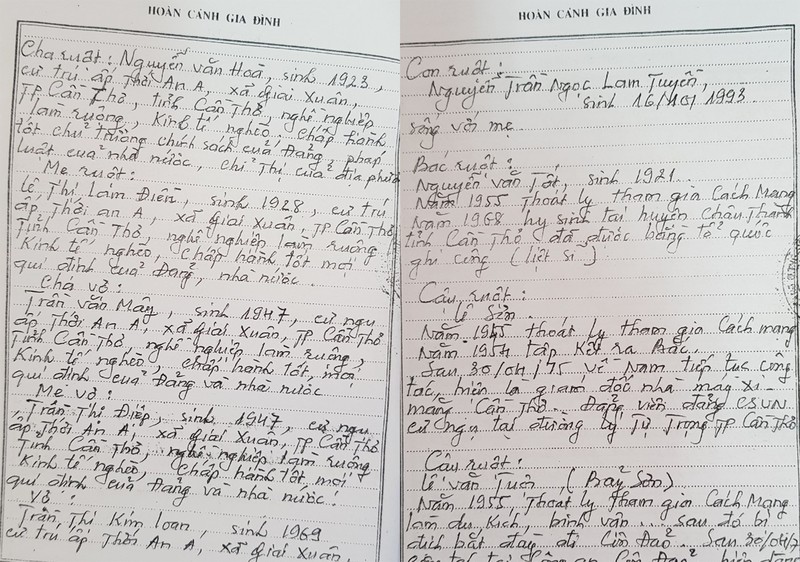 HOÀN CẢNH GIA ĐÌNH
Cha ruột: Nguyễn Văn Hoà, sinh 1923,
cư trú ấp Thới An A, xã Giai Xuân,
TP Cần Thơ, tỉnh Cần Thơ, nghề nghiệp
làm ruộng, Kinh tế nghèo. chấp hành
tốt chủ trương chính sách của Đảng, pháp
luật của nhà nước, chỉ thị của địa phương
Mẹ ruột:
Lê Thị Lám Điền, sinh 1928, cư trú
ấp Thới an A, xã giai Xuân, TP Cần Thơ
Tỉnh Cần Thơ nghề nghiệp làm ruộng
Kinh tế nghèo, chấp hành tốt mọi
qui định của Đảng, nhà nước.
Cha vợ:
Trần Văn Mây, sinh 1947, cư ngụ
ấp Thới An A, xã giai Xuân, TP Cần Thơ
Tỉnh Cần Thơ nghề nghiệp làm ruộng,
Kinh tế nghèo, chấp hành tốt, mọi
qui định của Đảng và nhà nước
Mẹ vợ:
Trần Thị Điệp, sinh 1947, cư ngụ
ấp Thới An A, xã giai Xuân, TP Cần Thơ
Tỉnh Cần Thơ, nghề nghiệp làm ruộng
Kinh tế nghèo, chấp hành tốt, mọi
qui định của Đảng và nhà nước.
Vợ:
Trần Thị Kim Loan, sinh 1969
cư trú ấp Thới An A, xã giai Xuân,
HOÀN CẢNH GIA ĐÌNH
Con ruột:
Nguyễn Trần Ngọc Lam Tuyền,
sinh 16/10/1993
sống với mẹ
Bác ruột:
Nguyễn Văn Tốt, sinh 1921.
Năm 1955 Thoát ly tham gia Cách Mạng
Năm 1968 hy sinh tại huyện Châu Thành
tỉnh Cần Thơ đã được bằng tổ quốc
ghi công (liệt sĩ)
Cậu ruột:
Lê Sơn
Năm 1945 thoát ly tham gia Cách mạng
Năm 1954 tập Kết ra Bắc,
Sau 30/04/75 về Nam tiếp tục công
tác, hiện là giam đốc nhà may xi
măng Cần Thơ. Đảng viên đảng CSVN
cư ngụ tại đường Lý Tự Trọng TP Cần Thơ
Cậu ruột:
Lê Văn (Bảy Sơn)
Năm 1955, Thoát ly tham gia Cách Mạng
làm du Kích, binh vận... sau đó bị
địch bắt đày đi Côn Đảo. Sau 30/04/7